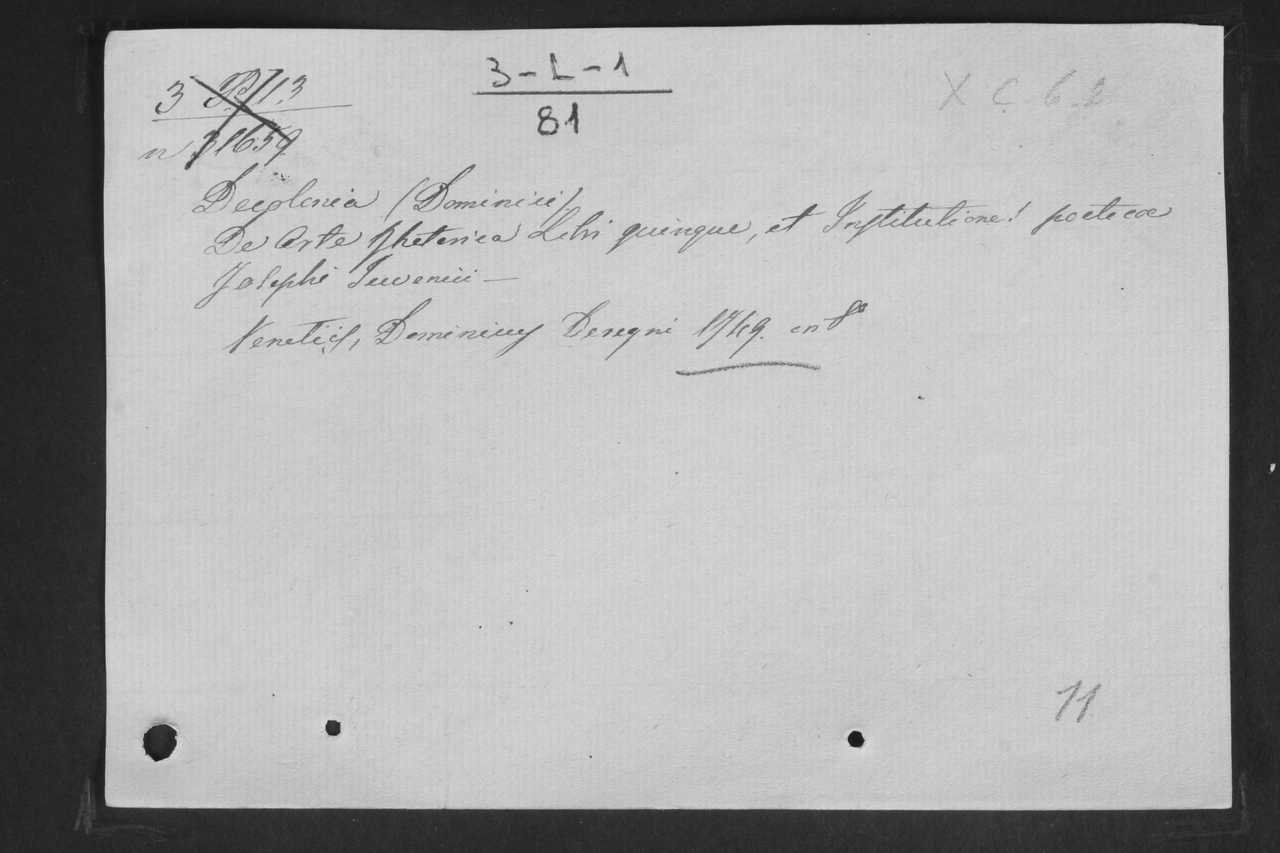 3-L-1
81
X C 6 2
3
n 31659
Decolonia (Dominici)
De Arte Rhetorica Libri quinque, et Institutiones poeticae
Josephi Juvenicii —
Venetiis, Dominicus Deregni 1749. in 8º
11